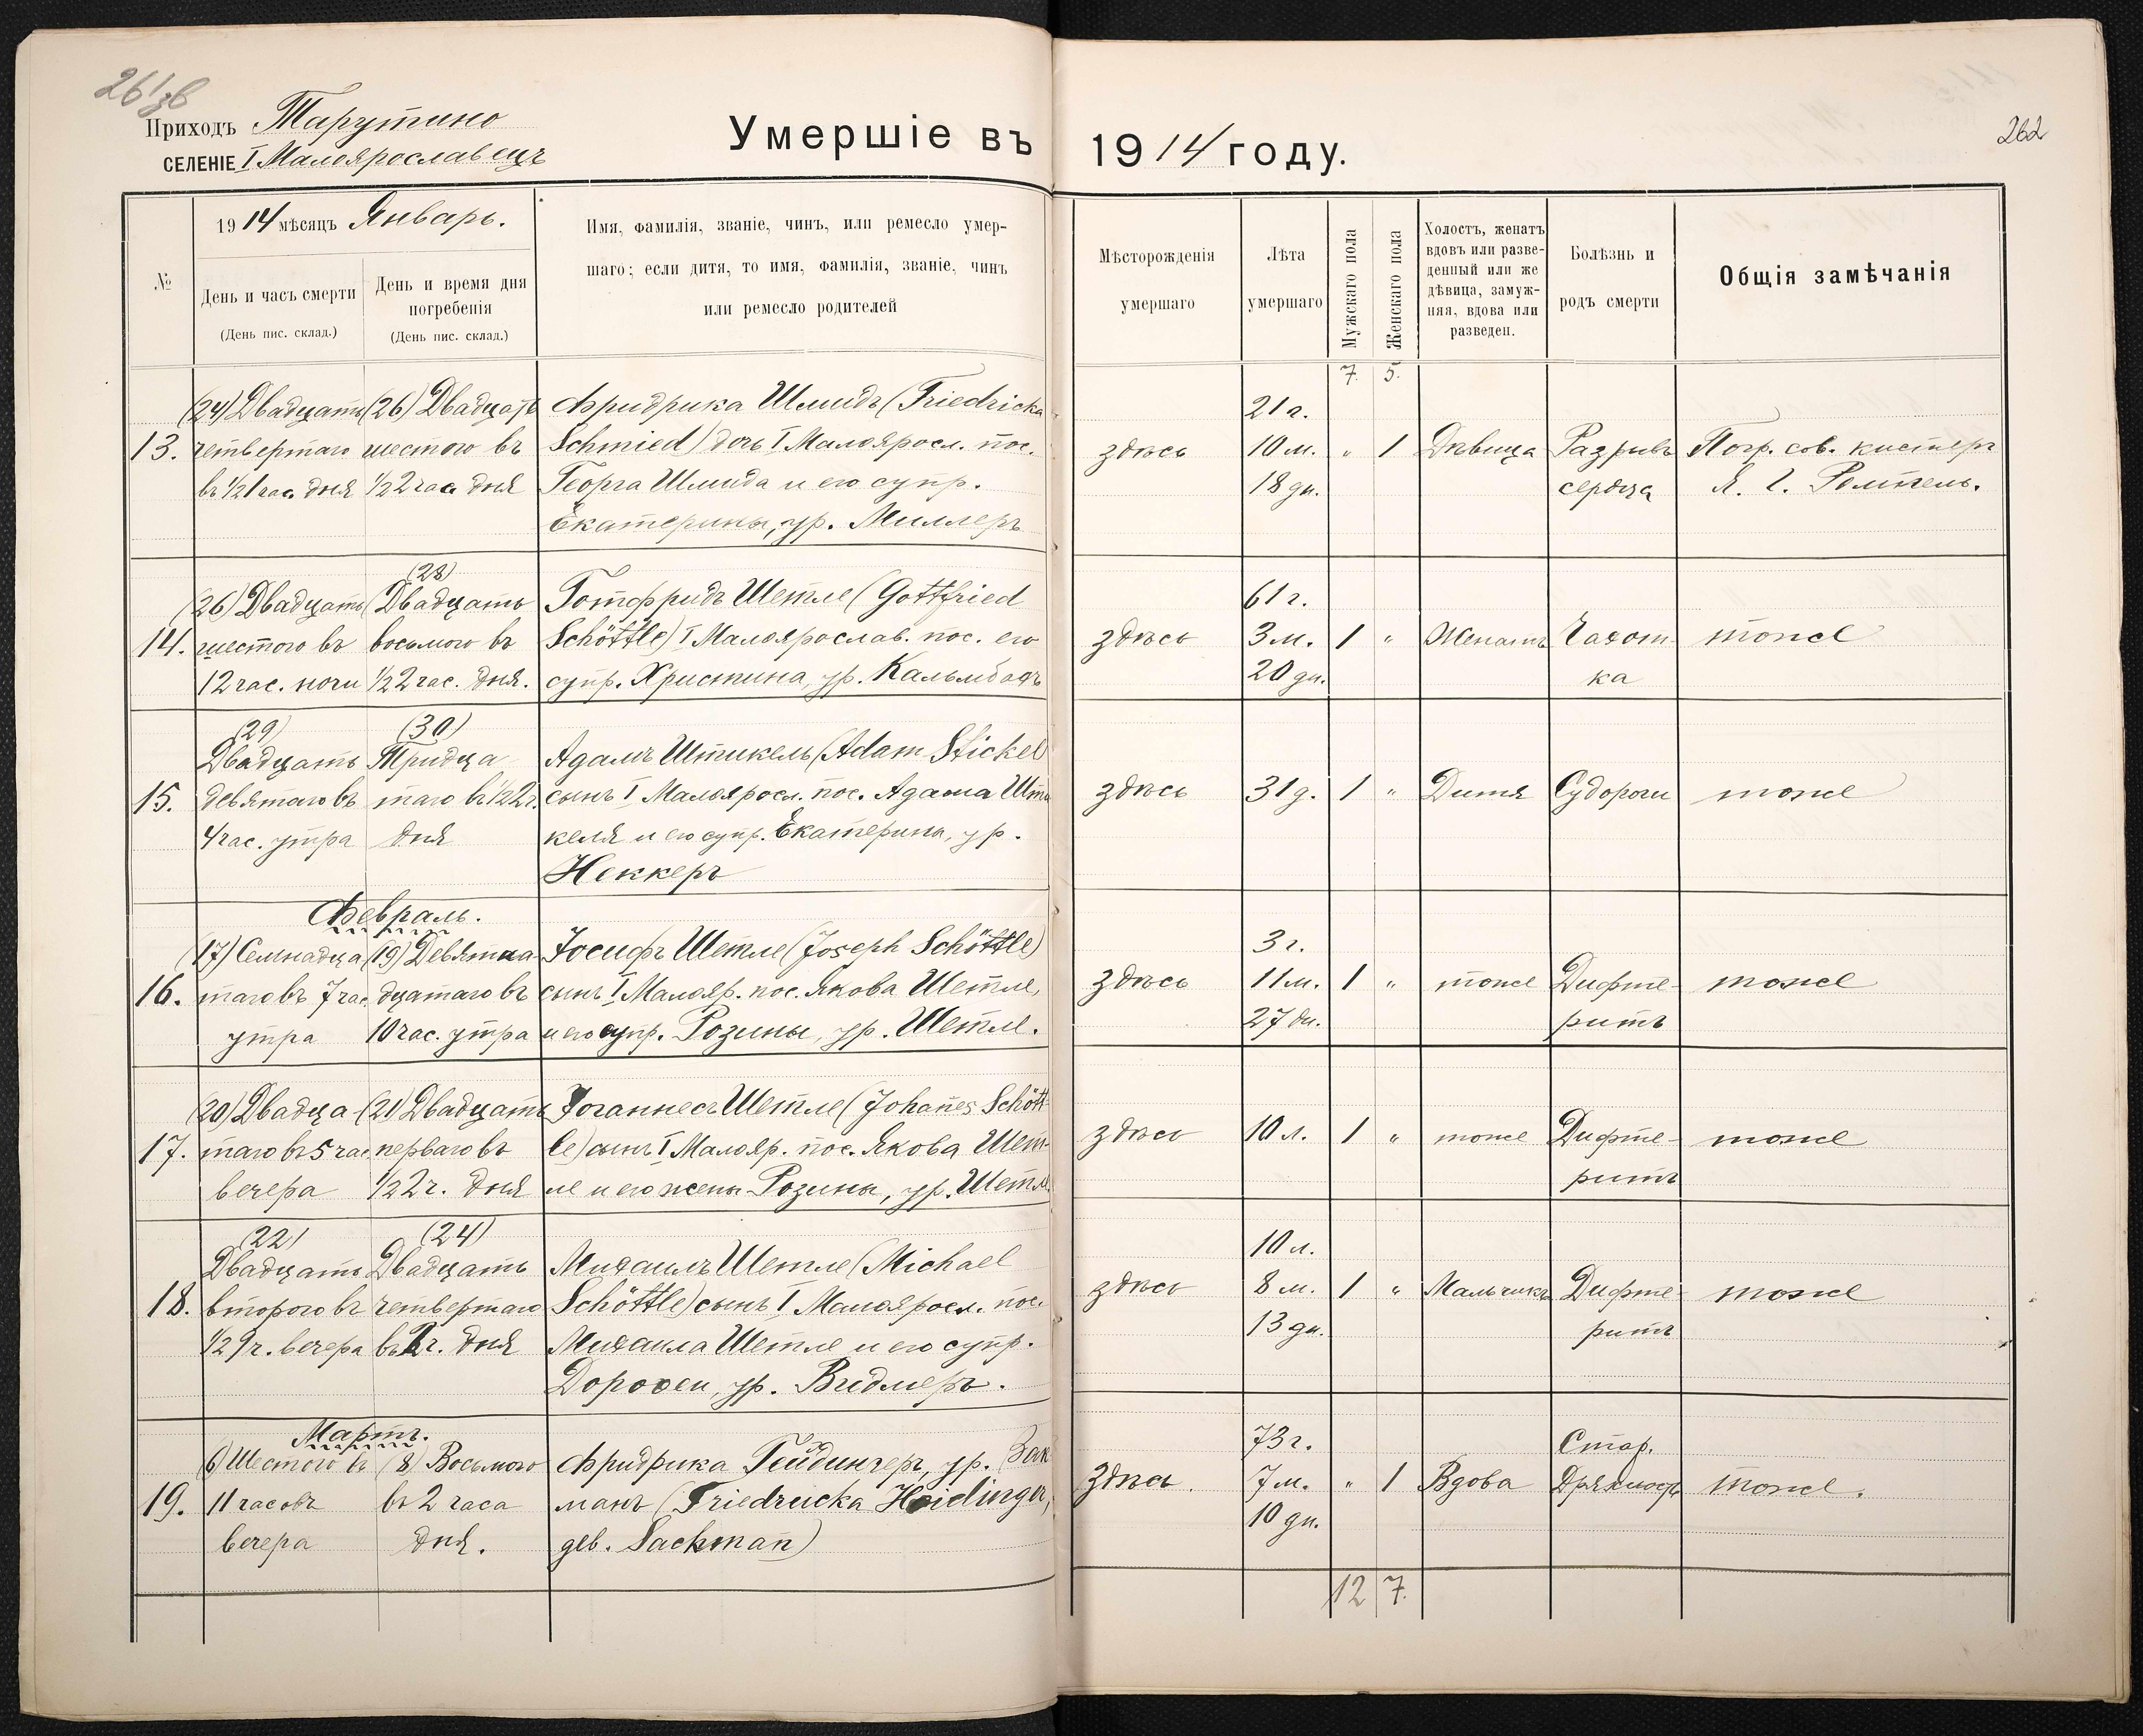 261зв
Приходъ Тарутино
СЕЛЕНІЕ I Малоярославецъ
Умершіе въ 1914 году.
262
№
1914 мѣсяцъ Январь.
День и часъ смерти
(День пис. склад.)
День и время дня
погребенія
(День пис. склад.)
Имя, фамилія, званіе, чинъ, или ремесло умер-
шаго; если дитя, то имя, фамилія, званіе, чинъ
или ремесло родителей
Мѣсторожденія
умершаго
Лѣта
умершаго
Мужскаго пола
Женскаго пола
Холостъ, женатъ
вдовъ или разве-
денный или же
дѣвица, замуж-
няя, вдова или
разведен.
Болѣзнь и
родъ смерти
Общія замѣчанія
7. 5.
13.
(24) Двадцать
четвертаго
въ ½1 часа дня
(26) Двадцать
шестого въ
½2 часа дня
Фридрика Шмидъ (Friedricka
Schmied) дочь I Малояросл. пос.
Георга Шмида и его супр.
Екатерины, ур. Миллеръ
здѣсь
21 г.
10 м.
18 дн.
" 1
Дѣвица
Разрывъ
сердца
Погр. сов. кистеръ
14.
(26) Двадцать
шестого въ
12 час. ночи
(28)
Двадцать
восьмого въ
½2 час. дня.
Готфридъ Шетле (Gottfried
Schöttle) I Малоярослав. пос. его
супр. Христина, ур. Кальмбахъ
здѣсь
61 г.
3 м.
20 дн.
1 "
Женатъ
Чахот-
ка
тоже
15.
(29)
Двадцать
девятаго въ
4 час. утра
(30)
Тридца
таго въ ½2 ч.
дня
Адамъ Штикель (Adam Stickel
сынъ I Малояросл. пос. Адама Шти
келя и его супр. Екатерина, ур.
Неккеръ
здѣсь
31 д.
1 "
Дитя
Судороги
тоже
Февраль.
16.
(17) Семнадца
таго въ 7 час
утра
(19) Девятна-
дцатаго въ
10 час. утра
Іосифъ Шетле (Joseph Schöttle)
сынъ I Малояр. пос. Якова Шетле,
и его супр. Розины, ур. Шетле.
здѣсь
3 г.
11 м.
27 дн.
1 "
тоже
Дифте-
ритъ
тоже
17.
(20) Двадца-
таго въ 5 час
вечера
(21) Двадцать
перваго въ
½2 ч. дня
Іоганнесъ Шетле (Johan̄es Schött-
le) сынъ I Малояр. пос. Якова Шет-
ле и его жены Розины, ур. Шетле
здѣсь
10 л.
1 "
тоже
Дифте-
ритъ
тоже
18.
(22)
Двадцать
второго въ
½9 ч. вечера
(24)
Двадцать
четвертаго
ч. дня
Михаилъ Шетле (Michael
Schöttle) сынъ I Малояросл. пос.
Михаила Шетле и его супр.
Доровеи, ур. Видмеръ.
здѣсь
10 л.
8 м.
13 дн.
1 "
Мальчикъ
Дифте-
ритъ
тоже
Мартъ.
19.
(6) Шестого въ
11 часовъ
вечера
(8) Восьмого
въ 2 часа
дня.
Фридрика Гейдингеръ, ур. Зак
манъ (Friedricka Heidinger,
geb. Sackman̄)
здѣсь.
73 г.
7 м.
10 дн.
" 1
Вдова
Стар.
Дряхлость
тоже.
12 7.